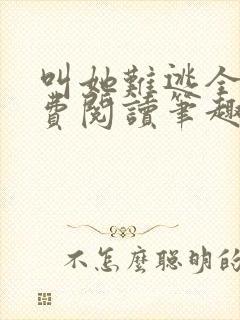 叫她難逃全
費閱讀筆趣
不怎麼聰明的